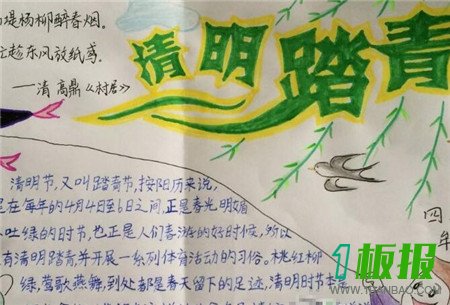 堤杨柳醉春烟。
趁东风放纸鸢。
——清 高鼎《村居》
清明踏青
清明节，又叫踏青节，按阳历来说，
是在每年的4月4日至6日之间，正是春光明媚
吐绿的时节，也正是人们春游的好时候，所以
有清明踏青并开展一系列体育活动的习俗，桃红柳
绿，莺歌燕舞，到处都是春天留下的足迹，清明时节
四
年
1板报